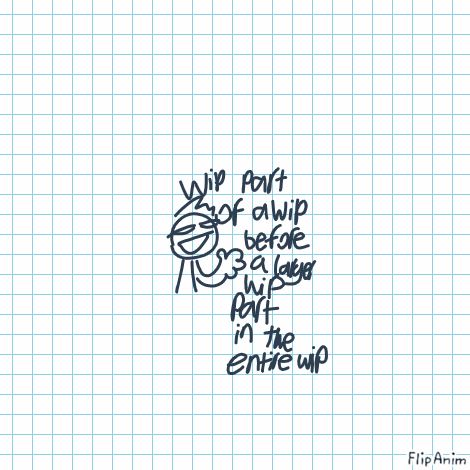 Wip part
of a wip
before
a larger
wip
part
in the
entire wip
FlipAnim